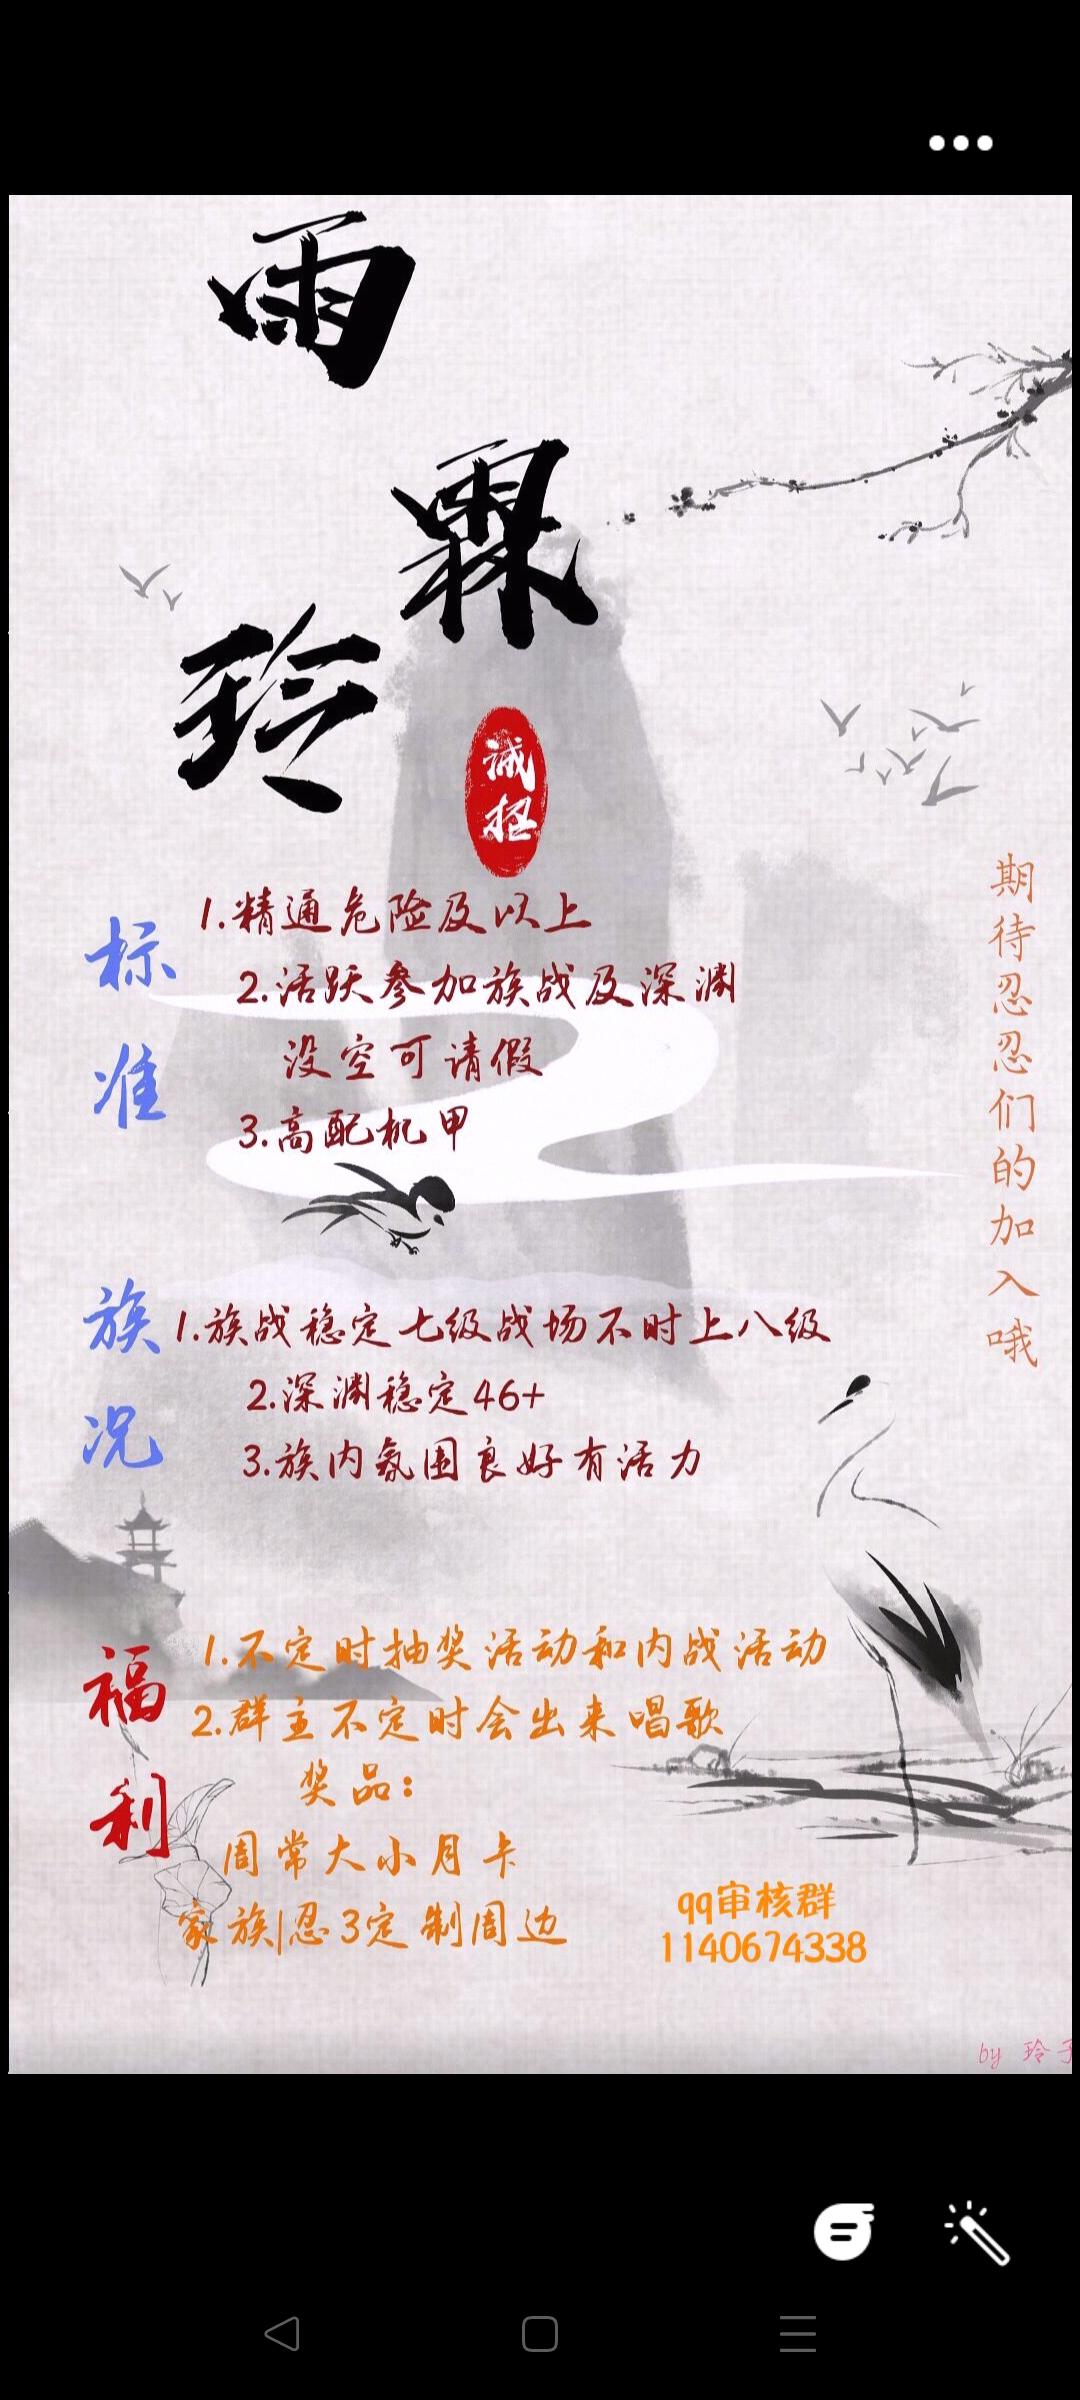 雨
霖
玲
诚招
标准
1.精通危险及以上
2.活跃参加族战及深渊
没空可请假
3.高配机甲
期待忍忍们的加入哦
族况
1.族战稳定七级战场不时上八级
2.深渊稳定46+
3.族内氛围良好有活力
福利
1.不定时抽奖活动和内战活动
2.群主不定时会出来唱歌
奖品：
周常大小月卡
家族|忍3定制周边
qq审核群
1140674338
by 玲子